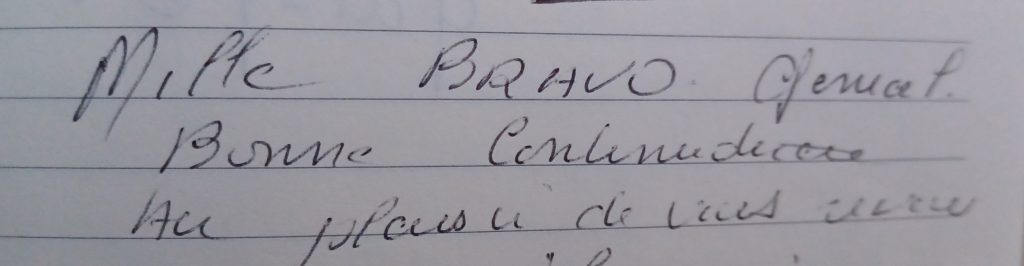 Mille BRAVO. Génial.
Bonne Continuation
Au plaisir de vous revoir